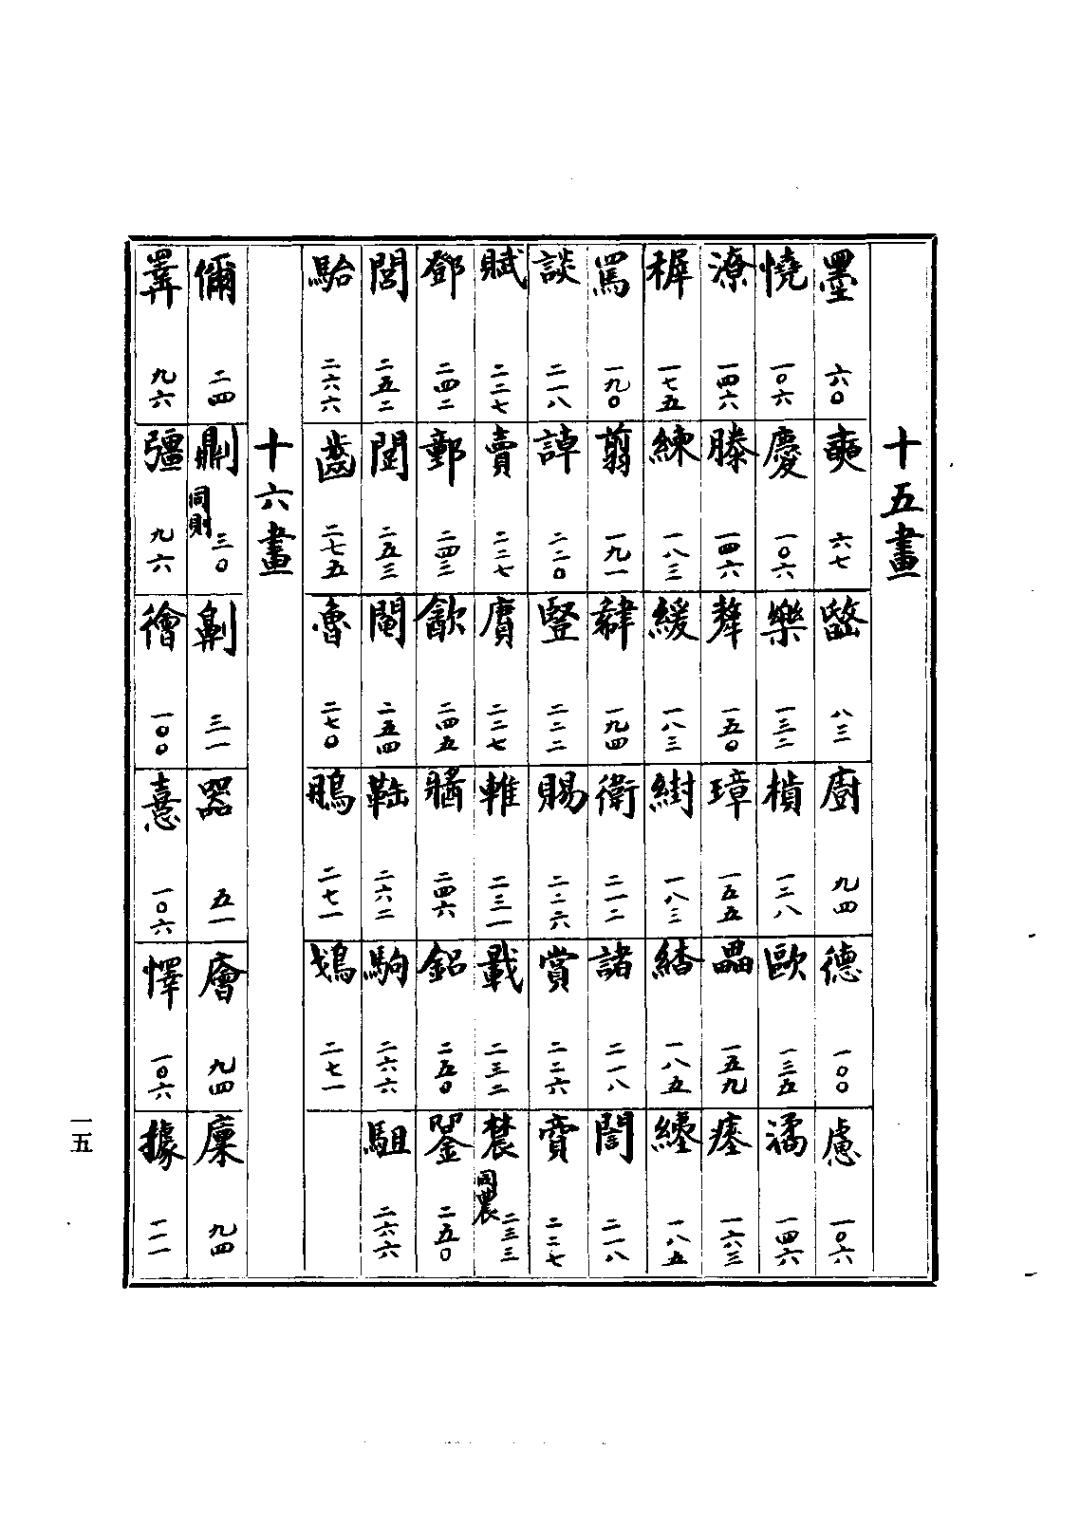 十五畫
墨 六〇
奭 六七
八三
廚 九四
德 一〇〇
慮 一〇六
憢 一〇六
慶 一〇六
樂 一三二
樻 一三八
歐 一三五
潏 一四六
潦 一四六
滕 一四六
犛 一五〇
璋 一五五
畾 一五九
瘞 一六三
樨 一七五
練 一八三
緩 一八三
一八三
一八五
一八五
罵 一九〇
翦 一九一
一九四
衛 二一二
諸 二一八
誾 二一八
談 二一八
諄 二二〇
豎 二二二
賜 二二六
賞 二二六
賨 二二七
賦 二二七
賣 二二七
賡 二二七
二三一
二三二
同農 二三三
鄧 二四二
鄣 二四三
歙 二四五
二四六
鋁 二五〇
二五〇
閭 二五二
閏 二五三
閩 二五四
二六二
駒 二六六
駔 二六六
駘 二六六
齒 二七五
魯 二七〇
鴅 二七一
二七一
十六畫
儞 二四
鼎刂 同則 三〇
劓 三一
器 五一
廥 九四
廩 九四
九六
彊 九六
襘 一〇〇
憙 一〇六
懌 一〇六
據 一一一
一五